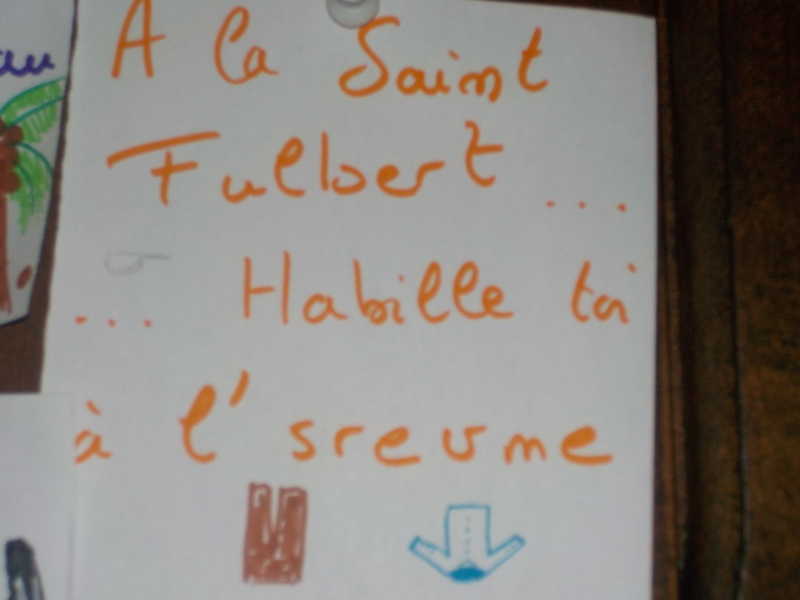 au
A la Saint
Fulbert ...
... Habille toi
à l'srevme